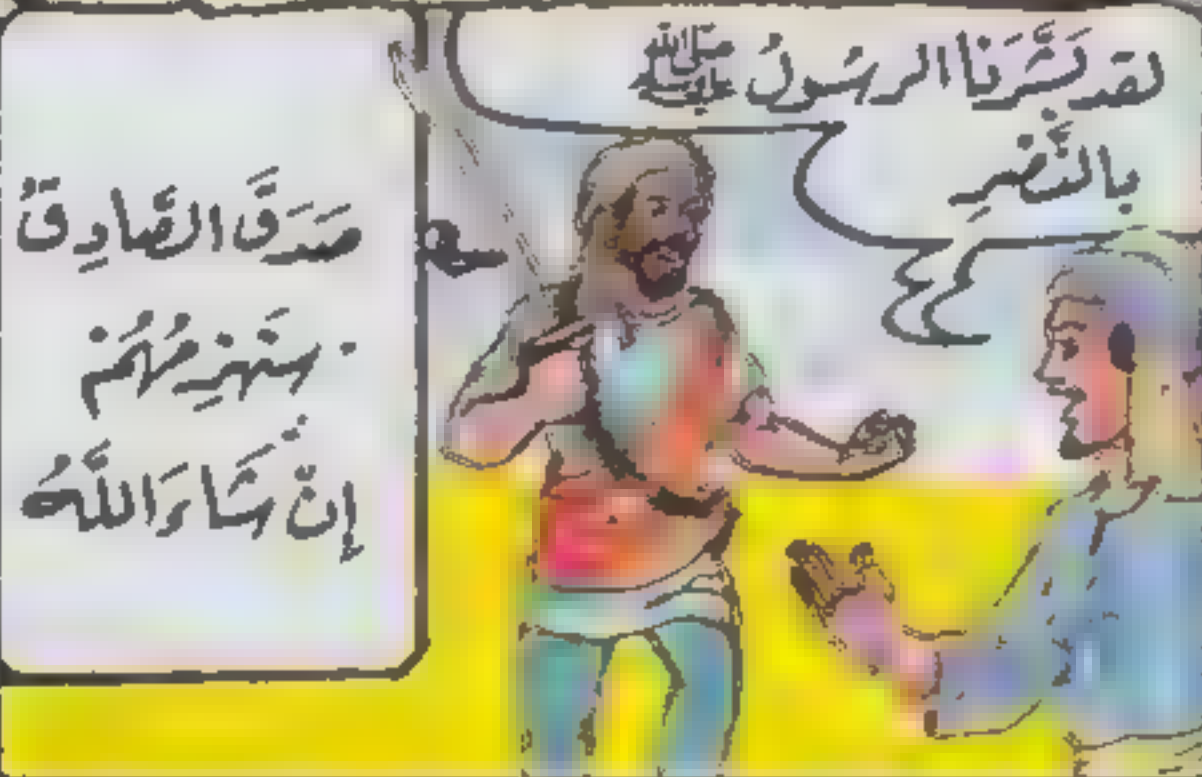 لقد بَشَّرَنا الرسُولُ ﷺ
بالنَّصْرِ
صَدَقَ الصَّادِقُ
سنَهزِمُهُمْ
إنْ شَاءَ اللَّهُ